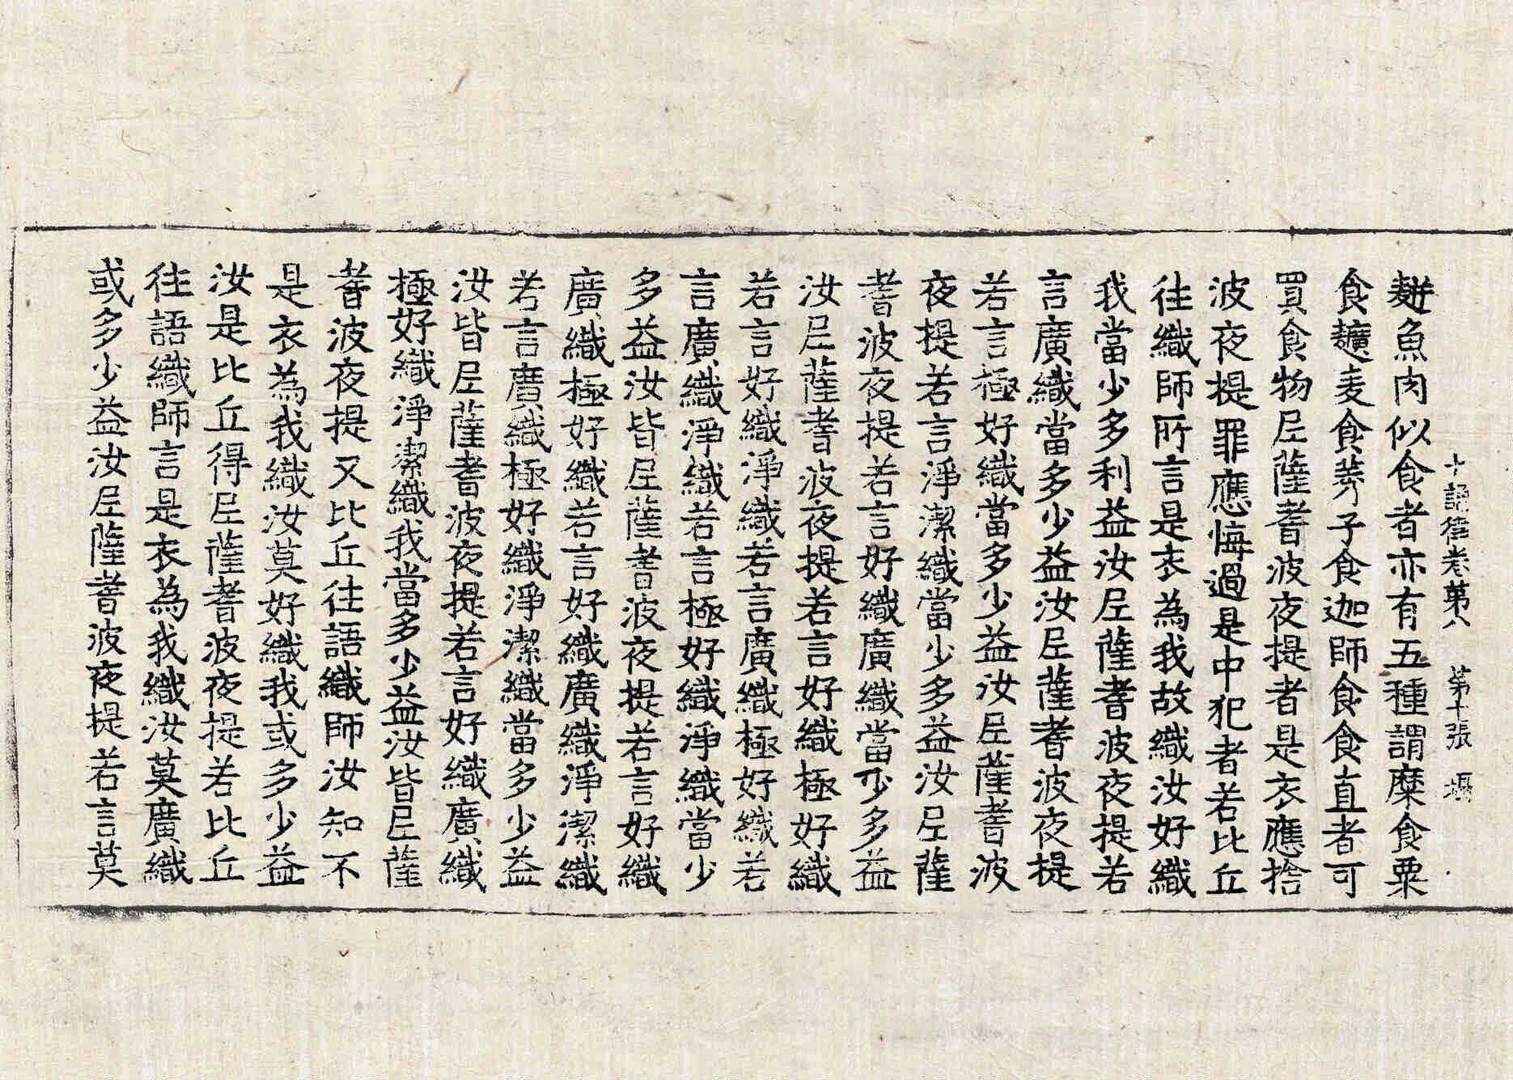 十誦律卷苐八　苐十張
䴵魚肉似食者亦有五種謂糜食粟
食䵃麦食莠子食迦師食食直者可
買食物尼薩耆波夜提者是衣應捨
波夜提罪應悔過是中犯者若比丘
往織師所言是衣為我故織汝好織
我當少多利益汝尼薩耆波夜提若
言廣織當多少益汝尼薩耆波夜提
若言極好織當多少益汝尼薩耆波
夜提若言淨潔織當少多益汝尼薩
耆波夜提若言好織廣織當少多益
汝尼薩耆波夜提若言好織極好織
若言好織淨織若言廣織極好織若
言廣織淨織若言極好織淨織當少
多益汝皆尼薩耆波夜提若言好織
廣織極好織若言好織廣織淨潔織
若言廣織極好織淨潔織當多少益
汝皆尼薩耆波夜提若言好織廣織
極好織淨潔織我當多少益汝皆尼薩
耆波夜提又比丘往語織師汝知不
是衣為我織汝莫好織我或多少益
汝是比丘得尼薩耆波夜提若比丘
往語織師言是衣為我織汝莫廣織
或多少益汝尼薩耆波夜提若言莫